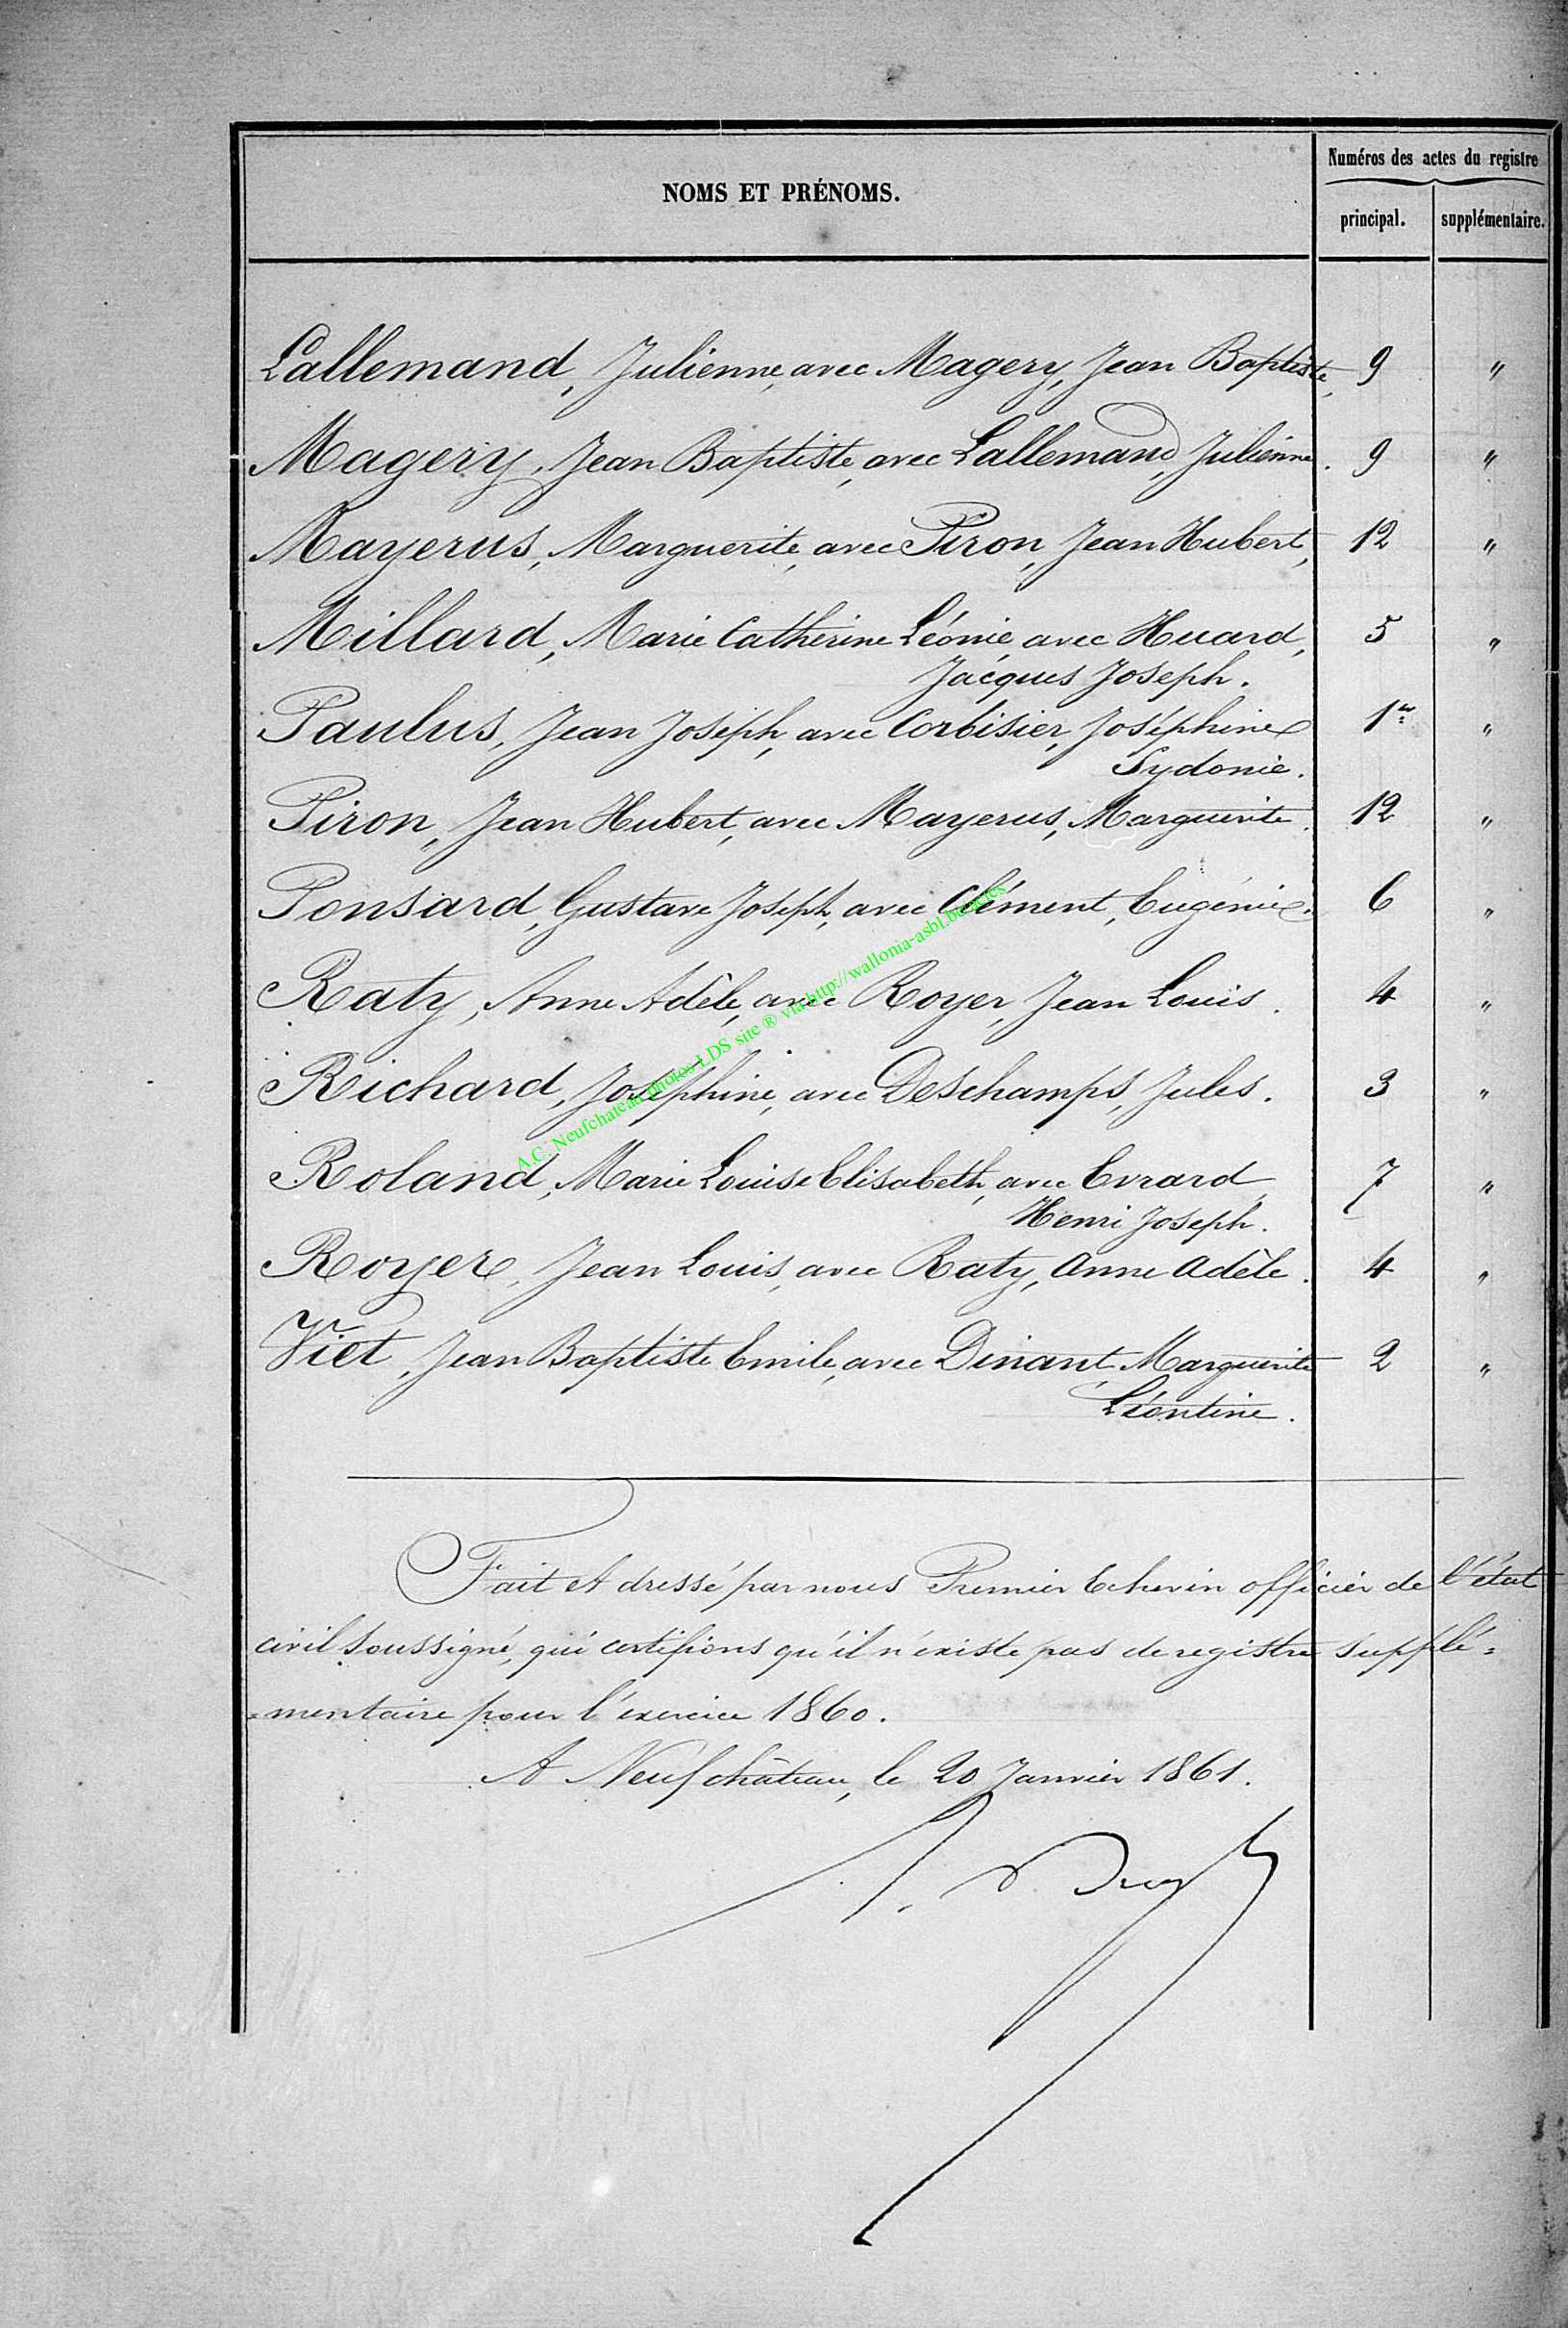 Numéros des actes du registre
NOMS ET PRÉNOMS.
principal. supplémentaire.
Lallemand, Julienne, avec Magery, Jean Baptiste, 9 "
Magery, Jean Baptiste, avec Lallemand, Julienne. 9 "
Mayerus, Marguerite, avec Piron, Jean Hubert, 12 "
Millard, Marie Catherine Léonie, avec Huard, 5 "
Jacques Joseph.
Paulus, Jean Joseph, avec Corbisier, Joséphine 1er "
Sydonie.
Piron, Jean Hubert, avec Mayerus, Marguerite. 12 "
Ponsard, Gustave Joseph, avec Clément, Eugénie. 6 "
Raty, Anne Adèle, avec Royer, Jean Louis. 4 "
Richard, Joséphine, avec Deschamps, Jules. 3 "
Roland, Marie Louise Elisabeth, avec Evrard 7 "
Henri Joseph.
Royer, Jean Louis, avec Raty, Anne Adèle. 4 "
Viet, Jean Baptiste Emile, avec Dinant, Marguerite 2 "
Léontine.
Fait et dressé par nous Premier Echevin officier de l'état
civil soussigné, qui certifions qu'il n'existe pas de registre supplé=
=mentaire pour l'exercice 1860.
A Neufchâteau, le 20 Janvier 1861.
A.C. Neufchateau photos LDS site ® via http://wallonia-asbl.be/actes